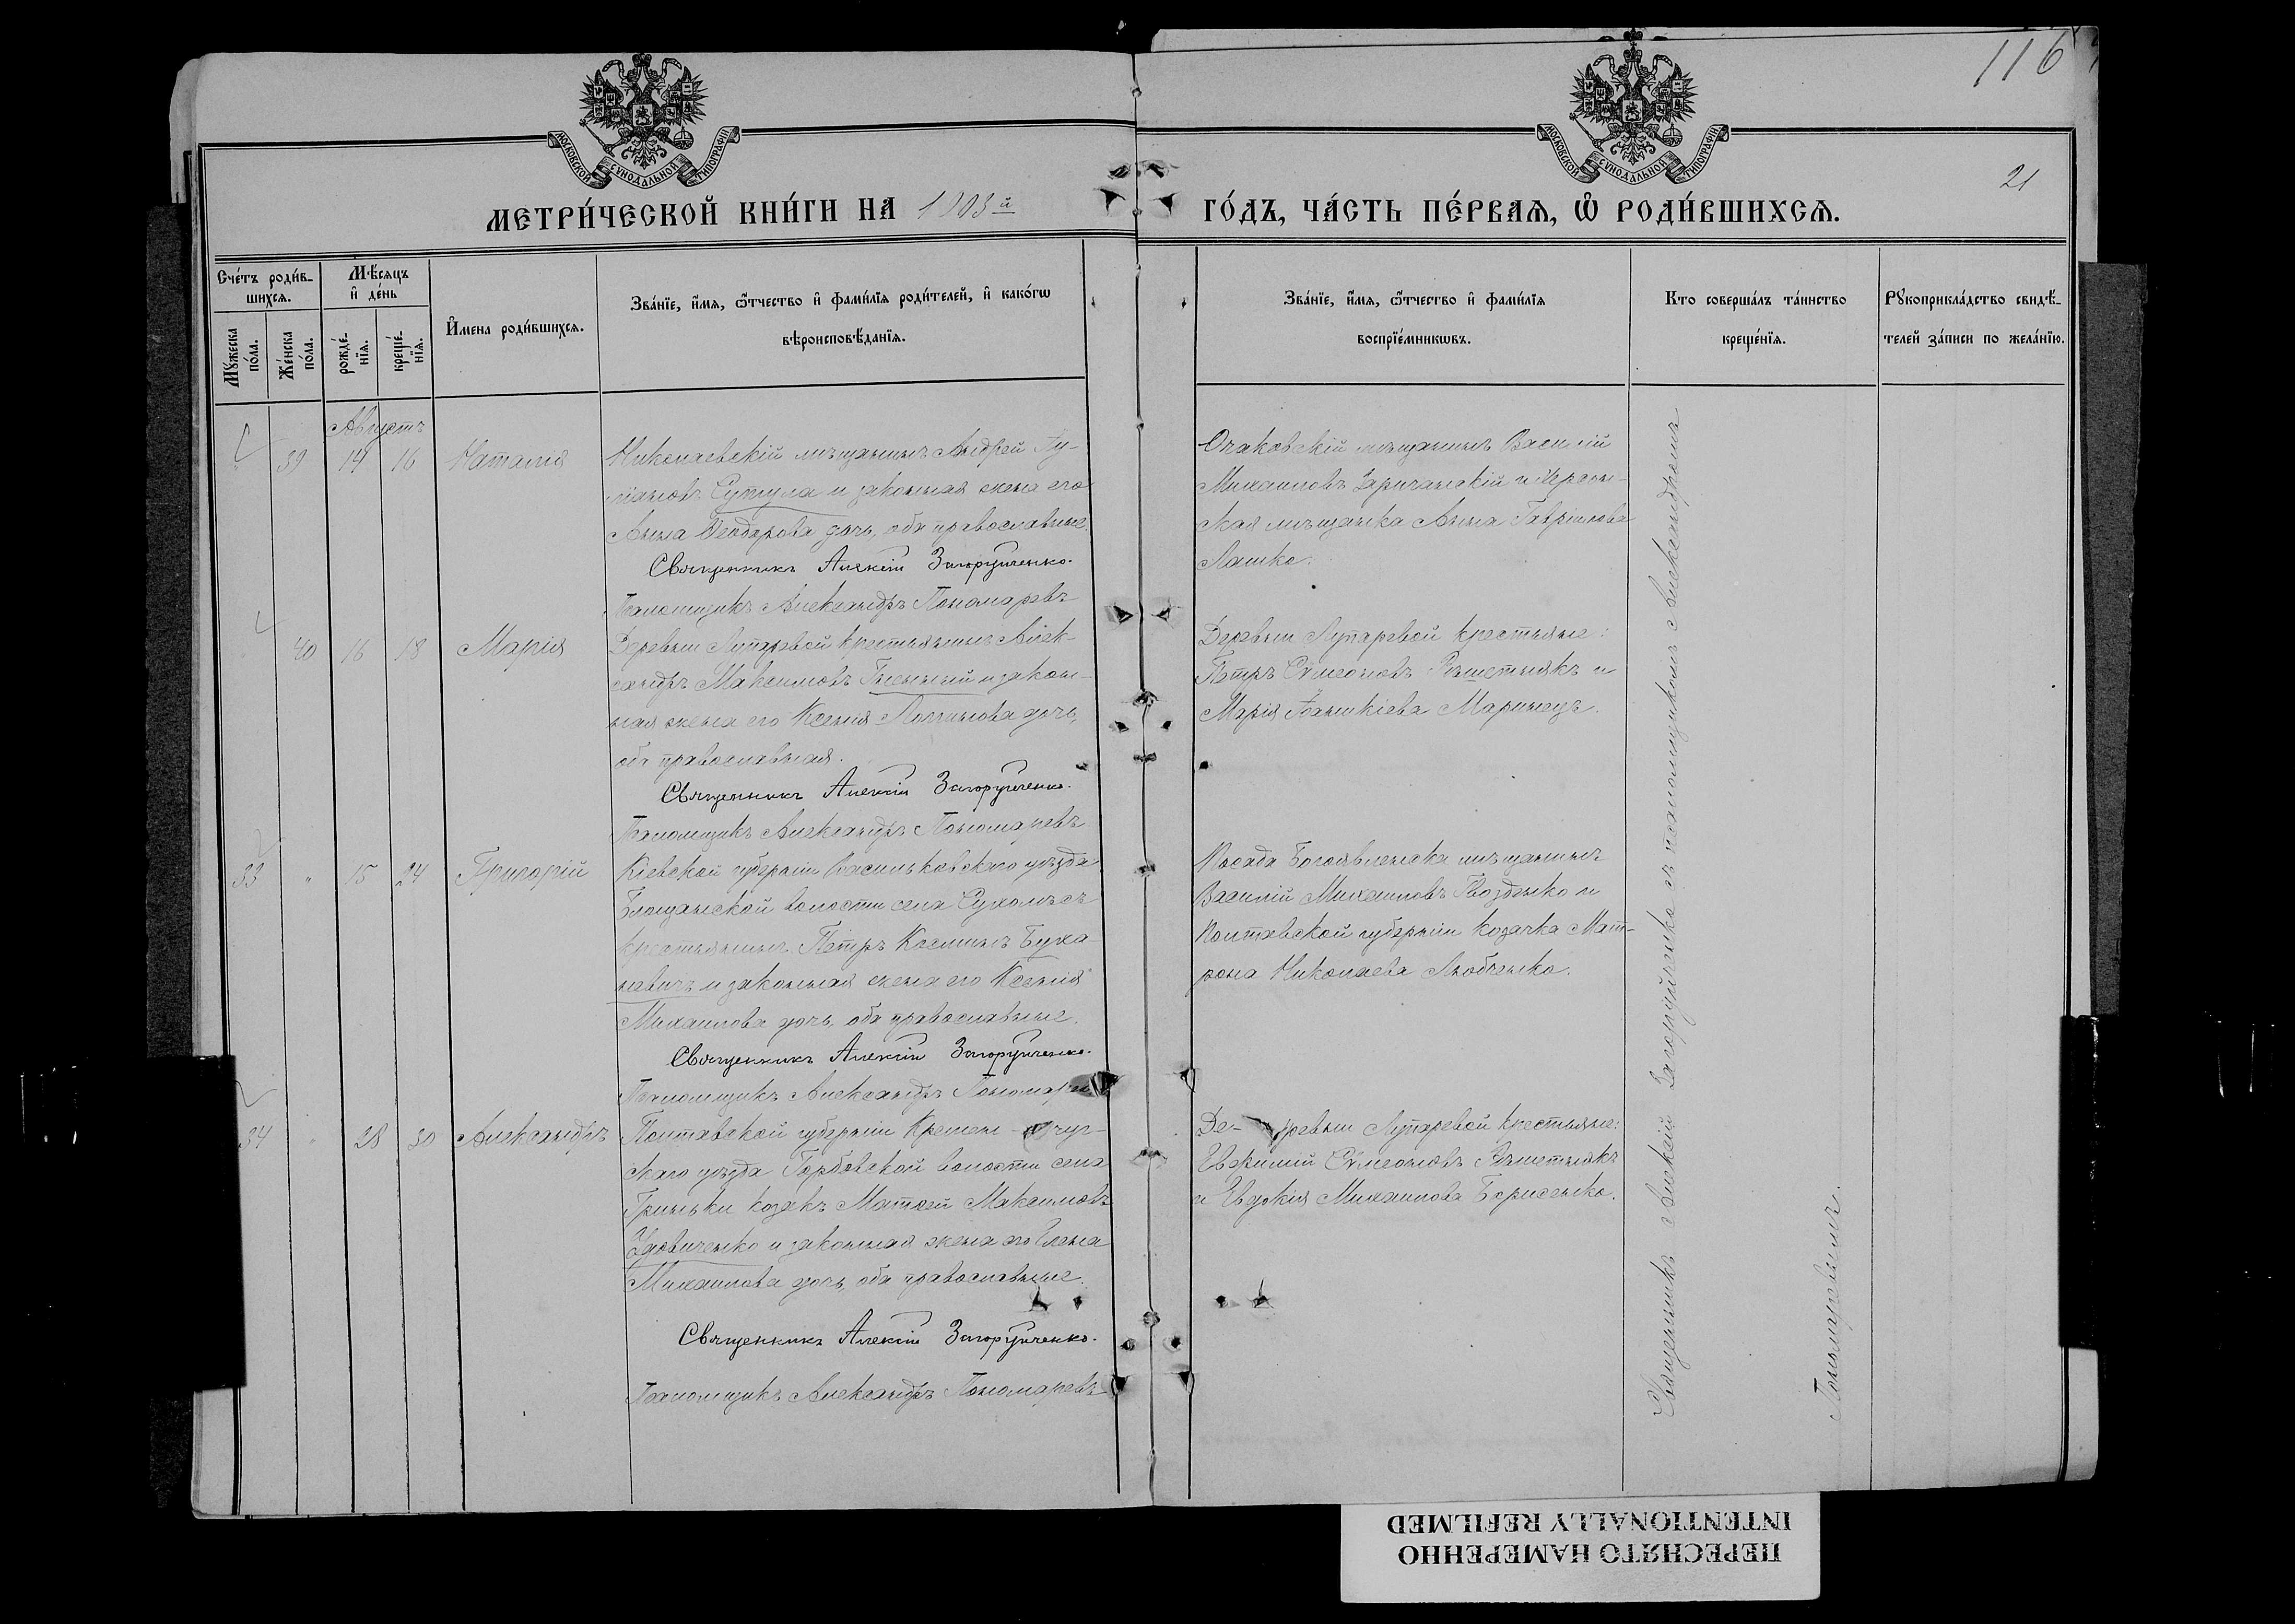 116
21
МОСКОВСКОЙ СУНОДАЛЬНОЙ ТИПОГРАФІИ
МОСКОВСКОЙ СУНОДАЛЬНОЙ ТИПОГРАФІИ
МЕТРИ́ЧЕСКОЙ КНИ́ГИ НА 1903й
ГО́ДЪ, ЧА́СТЬ ПЕ́РВАѦ, Ѡ РОДИ́ВШИХСѦ.
Сче́тъ роди́в-
шихсѧ.
Мꙋ́жеска по́ла.
Же́нска по́ла.
Мѣ́сѧцъ
и҆ де́нь
рожде́-
нїѧ.
креще́-
нїѧ.
И҆мена роди́вшихсѧ.
Зва́нїе, и҆́мѧ, ѻ҆́тчество и҆ фами́лїѧ роди́телей, и҆ како́гѡ
вѣроисповѣ́данїѧ.
Зва́нїе, и҆́мѧ, ѻ҆́тчество и҆ фами́лїѧ
воспрїе́мникѡвъ.
Кто соверша́лъ та́инство
креще́нїѧ.
Рꙋкоприкла́дство свидѣ́-
телей за́писи по жела́нїю.
Августъ
" 39 14 16 Наталія
Николаевскій мѣщанинъ Андрей
Сутула и законная жена его
Анна Ѳеодорова дочь, оба православные.
Священникъ Алексій Загоруйченко.
Псаломщикъ Александръ Пономаревъ
Очаковскій мѣщанинъ Василій
Михаиловъ Заричанскій и Херсон-
ская мѣщанка Анна Гавріилова
Лашко.
40 16 18 Марія
Деревни Лупаревой крестьянинъ Алек-
сандръ Максимовъ и закон-
ная жена его Ксенія Логгинова дочь,
оба православная.
Священникъ Алексій Загоруйченко.
Псаломщикъ Александръ Пономаревъ
Деревни Лупаревой крестьяне:
Петръ Сѵмеоновъ Рѣшетнякъ и
Марія Маринецъ.
33 " 15 24 Григорій
Кіевской губерніи Васильковскаго уѣзда
волости села Сухолѣсъ
крестьянинъ Петръ Косминъ Буха-
невичъ и законная жена его Ксенія
Михаилова дочь, оба православные.
Священникъ Алексій Загоруйченко.
Псаломщикъ Александръ Пономарев
Посада Богоявленска мѣщанинъ
Василій Михаиловъ Гвозденко и
Полтавской губерніи козачка Мат-
рона Николаева Любченко.
34 " 28 30 Александръ
Полтавской губерніи Кремен-чуг-
скаго уѣзда Горбовской волости села
Гриньки козакъ Матѳей Максимовъ
Удовиченко и законная жена его Елена
Михаилова дочь, оба православные.
Священникъ Алексій Загоруйченко.
Псаломщикъ Александръ Пономаревъ
Де-ревни Лупаревой крестьяне:
Евфимий Сѵмеоновъ Рѣшетнякъ
и Евдокія Михаилова Борисенко.
Священникъ Алексій Загоруйченко съ псаломщикомъ Александромъ
Пономаревымъ.
ПЕРЕСНЯТО НАМЕРЕННО
INTENTIONALLY REFILMED